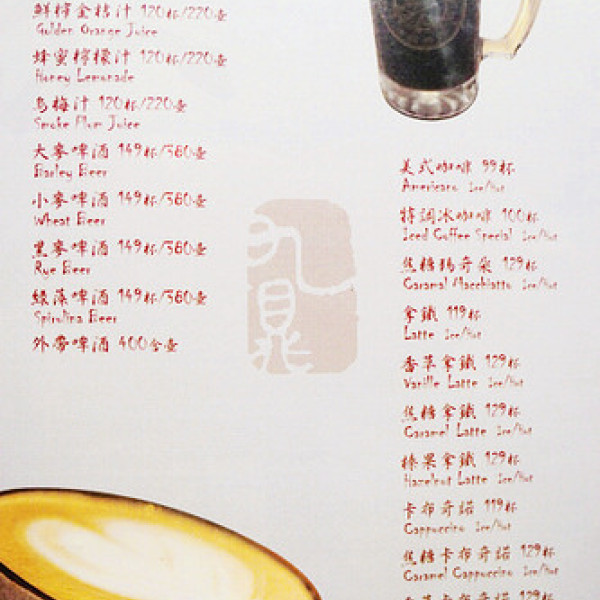 鮮榨金桔汁 120杯/220壺
Golden Orange Juice
蜂蜜檸檬汁 120杯/220壺
Honey Lemonade
烏梅汁 120杯/220壺
Smoke Plum Juice
大麥啤酒 149杯/380壺
Barley Beer
小麥啤酒 149杯/380壺
Wheat Beer
黑麥啤酒 149杯/380壺
Rye Beer
綠藻啤酒 149杯/380壺
Spirulina Beer
外帶啤酒 400含壺
九鼎
美式咖啡 99杯
Americano Ice/Hot
特調冰咖啡 100杯
Iced Coffee Special Ice/Hot
焦糖瑪奇朵 129杯
Caramal Macchiatto Ice/Hot
拿鐵 119杯
Latte Ice/Hot
香草拿鐵 129杯
Vanille Latte Ice/Hot
焦糖拿鐵 129杯
Caramel Latte Ice/Hot
榛果拿鐵 129杯
Hazelnut Latte Ice/Hot
卡布奇諾 119杯
Cappuccino Ice/Hot
焦糖卡布奇諾 129杯
Caramel Cappuccino Ice/Hot
卡布奇諾 129杯